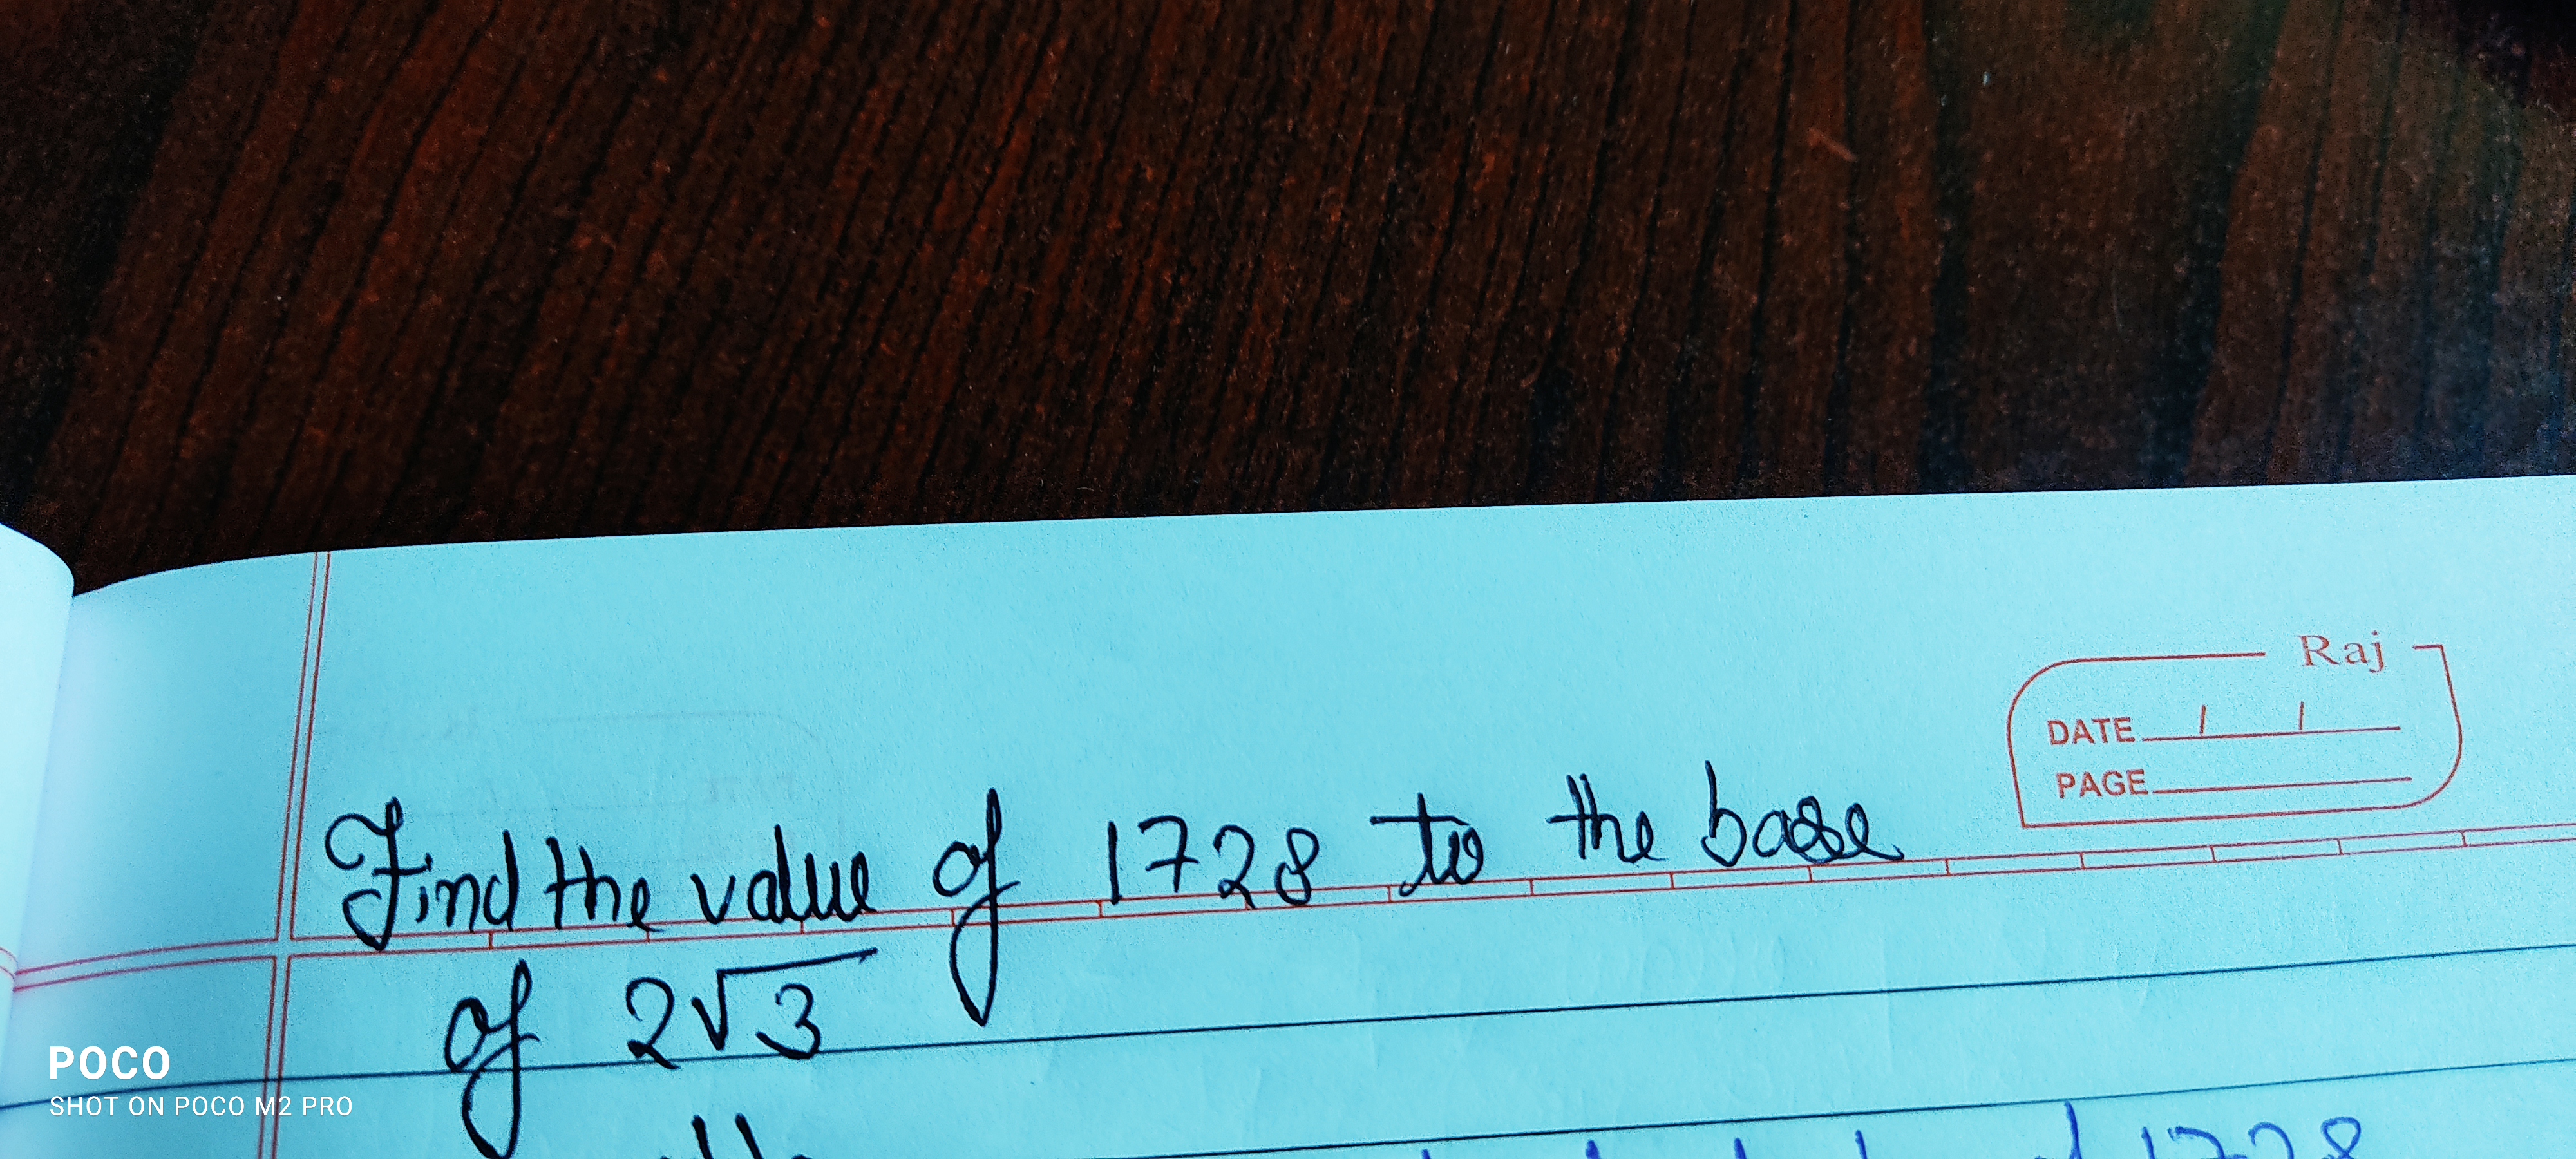 Raj
DATE / /
PAGE
Find the value of 1728 to the base
of 2√3
of 1728
POCO
SHOT ON POCO M2 PRO